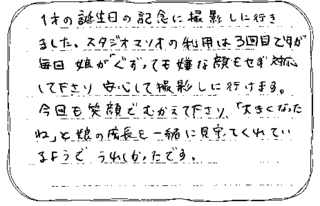 1才の誕生日の記念に撮影しに行き
ました。スタジオマリオの利用は3回目ですが
毎回 娘が ぐずっても嫌な顔もせず 対応
して下さり 安心して撮影しに行けます。
今回も笑顔でむかえて下さり、「大きくなった
ね」と娘の成長を一緒に見守ってくれてい
るようで うれしかったです。